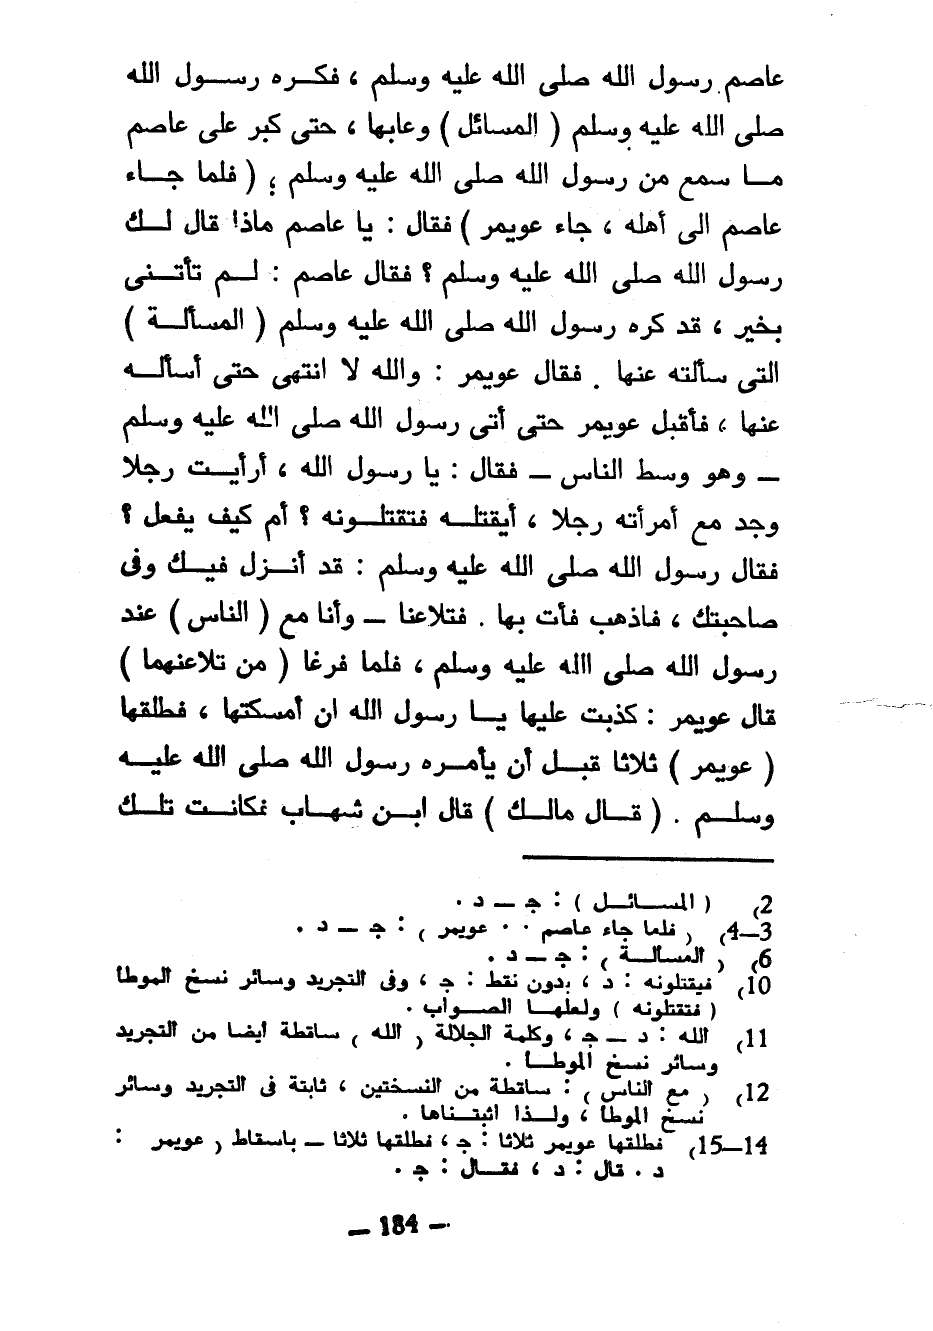 عاصم رسول الله صلى الله عليه وسلم ، فكره رسول الله
صلى الله عليه وسلم ( المسائل ) وعابها ، حتى كبر على عاصم
ما سمع من رسول الله صلى الله عليه وسلم ؛ ( فلما جاء
عاصم الى أهله ، جاء عويمر ) فقال : يا عاصم ماذا قال لك
رسول الله صلى الله عليه وسلم ؟ فقال عاصم : لم تأتنى
بخير ، قد كره رسول الله صلى الله عليه وسلم ( المسألة )
التى سألته عنها . فقال عويمر : والله لا انتهى حتى أسأله
عنها ، فأقبل عويمر حتى أتى رسول الله صلى الله عليه وسلم
ـ وهو وسط الناس ـ فقال : يا رسول الله ، أرأيت رجلا
وجد مع أمرأته رجلا ، أيقتله فتقتلونه ؟ أم كيف يفعل ؟
فقال رسول الله صلى الله عليه وسلم : قد أنزل فيك وفى
صاحبتك ، فاذهب فأت بها . فتلاعنا ـ وأنا مع ( الناس ) عند
رسول الله صلى الله عليه وسلم ، فلما فرغا ( من تلاعنهما )
قال عويمر : كذبت عليها يا رسول الله ان أمسكتها ، فطلقها
( عويمر ) ثلاثا قبل أن يأمره رسول الله صلى الله عليه
وسلم . ( قال مالك ) قال ابن شهاب فكانت تلك
2) ( المسائل ) : ج ـ د .
3ـ4) ( فلما جاء عاصم . . عويمر ) : ج ـ د .
6) ( المسالة ) : ج ـ د .
10) فيقتلونه : د ، بدون نقط : ج ، وفى التجريد وسائر نسخ الموطا
( فتقتلونه ) ولعلها الصواب .
11) الله : د ـ ج ، وكلمة الجلالة ( الله ) ساقطة ايضا من التجريد
وسائر نسخ الموطا .
12) ( مع الناس ) : ساقطة من النسختين ، ثابتة فى التجريد وسائر
نسخ الموطا ، ولذا اثبتناها .
14ـ15) فطلقها عويمر ثلاثا : ج ، فطلقها ثلاثا ـ باسقاط ( عويمر :
د . قال : د ، فقال : ج .
ـ 184 ـ